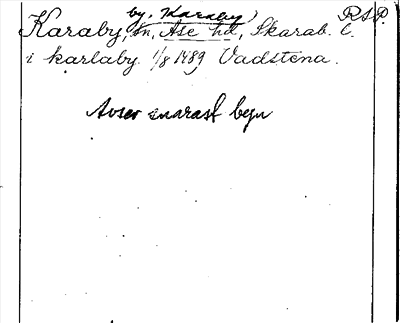 by, Karaby) R.S.P.
Karaby sn, Åse hd, Skarab. l.
i karlaby 1/8 1489 Vadstena.
Avser snarast byn